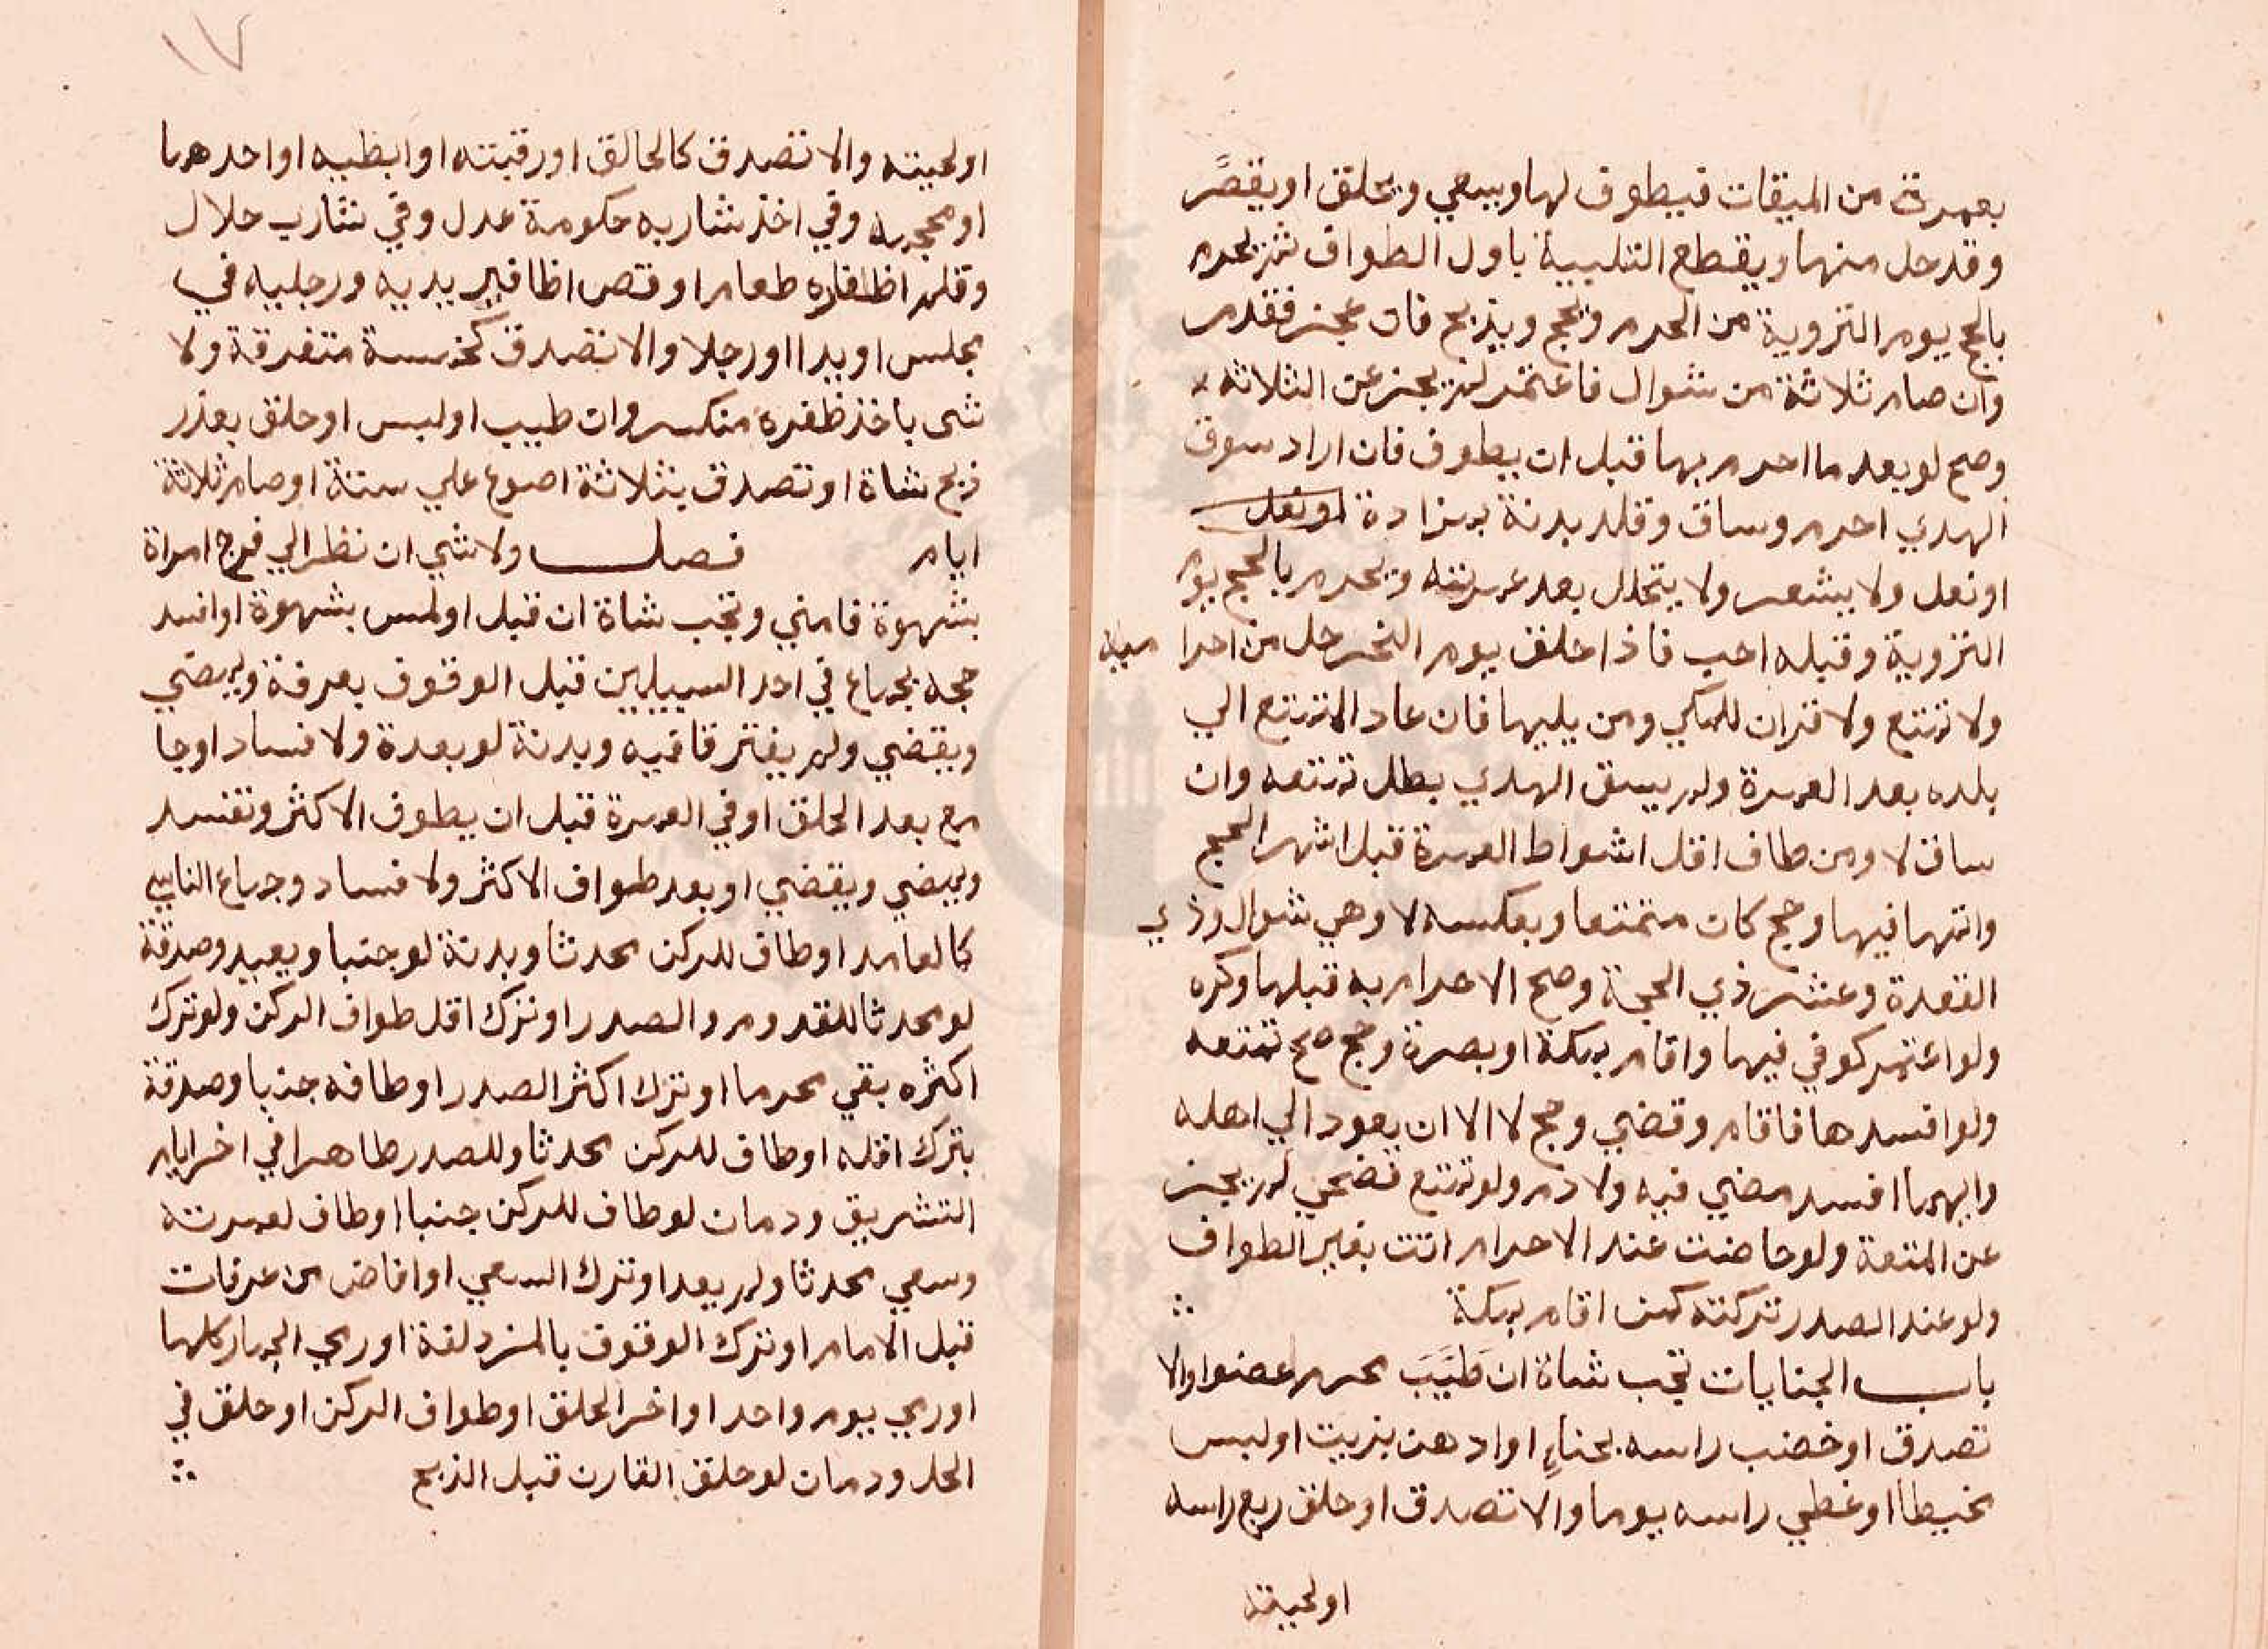 بعمرة من الميقات فيطوف لها ويسعي ويحلق او يقصر
وقد حل منها ويقطع التلبية باول الطواف ثم يحرم
بالحج يوم التروية من الحرم ويحج ويذبح فان عجز فقد مر
وان صام ثلاثة من شوال فاعتمر لم يجز عن الثلاثه
وصح لو بعد ما احرم بها قبل ان يطوف فان اراد سوق
الهدي احرم وساق وقلد بدنة بمزادة او نعل
او نعل ولا يشعر ولا يتحلل بعد عمرته ويحرم بالحج يوم
التروية وقبله احب فاذا حلق يوم النحر حل من احرا ميه
ولا تمتع ولا قران لمكي ومن يليها فان عاد المتمتع الي
بلده بعد العمرة ولم يسق الهدي بطل تمتعه وان
ساق لا ومن طاف اقل اشواط العمرة قبل اشهر الحج
واتمها فيها وحج كان متمتعا وبعكسه لا وهي شوال وذي
القعدة وعشر ذي الحجة وصح الاحرام به قبلها وكره
ولو اعتمر كوفي فيها واقام بمكة او بصرة وحج صح تمتعه
ولو افسدها فاقام وقضي وحج لا الا ان يعود الي اهله
وايهما افسد مضي فيه ولا دم ولو تمتع فضحي لم يجز
عن المتعة ولو حاضت عند الاحرام اتت بغير الطواف
ولو عند الصدر تركته كمن اقام بمكة
باب الجنايات تجب شاة ان طيب محرم عضوا والا
تصدق او خضب راسه بحناء او ادهن بزيت او لبس
مخيطا او غطي راسه يوما والا تصدق او حلق ربع راسه
او لحيته
١٧
او لحيته والا تصدق كالحالق او رقبته او ابطيه او احدهما
او محجمه وفي اخذ شاربه حكومة عدل وفي شارب حلال
وقلم اظفاره طعام او قص اظافير يديه ورجليه في
مجلس او يدا او رجلا والا تصدق كخمسة متفرقة ولا
شي باخذ ظفره منكسر وان طيب او لبس او حلق بعذر
ذبح شاة او تصدق بثلاثة اصوع علي ستة او صام ثلاثة
ايام فصل ولا شي ان نظر الي فرج امراة
بشهوة فامني وتجب شاة ان قبل او لمس بشهوة او افسد
حجه بجماع في احد السبيلين قبل الوقوف بعرفة ويمضي
ويقضي ولم يفترقا فيه وبدنة لو بعدة ولا فساد او جا
مع بعد الحلق او في العمرة قبل ان يطوف الاكثر وتفسد
ويمضي ويقضي او بعد طواف الاكثر ولا فساد وجماع الناسي
كالعامد او طاف للركن محدثا وبدنة لو جنبا ويعيد وصدقة
لو محدثا للقدوم والصدر او ترك اقل طواف الركن ولو ترك
اكثره بقي محرما او ترك اكثر الصدر او طافه جنبا وصدقة
بترك اقله او طاف للركن محدثا وللصدر طاهرا في اخر ايام
التشريق ودمان لو طاف للركن جنبا او طاف لعمرته
وسعي محدثا ولم يعد او ترك السعي او افاض من عرفات
قبل الامام او ترك الوقوف بالمزدلفة او رمي الجمار كلها
او رمي يوم واحد او اخر الحلق او طواف الركن او حلق في
الحل ودمان لو حلق القارن قبل الذبح